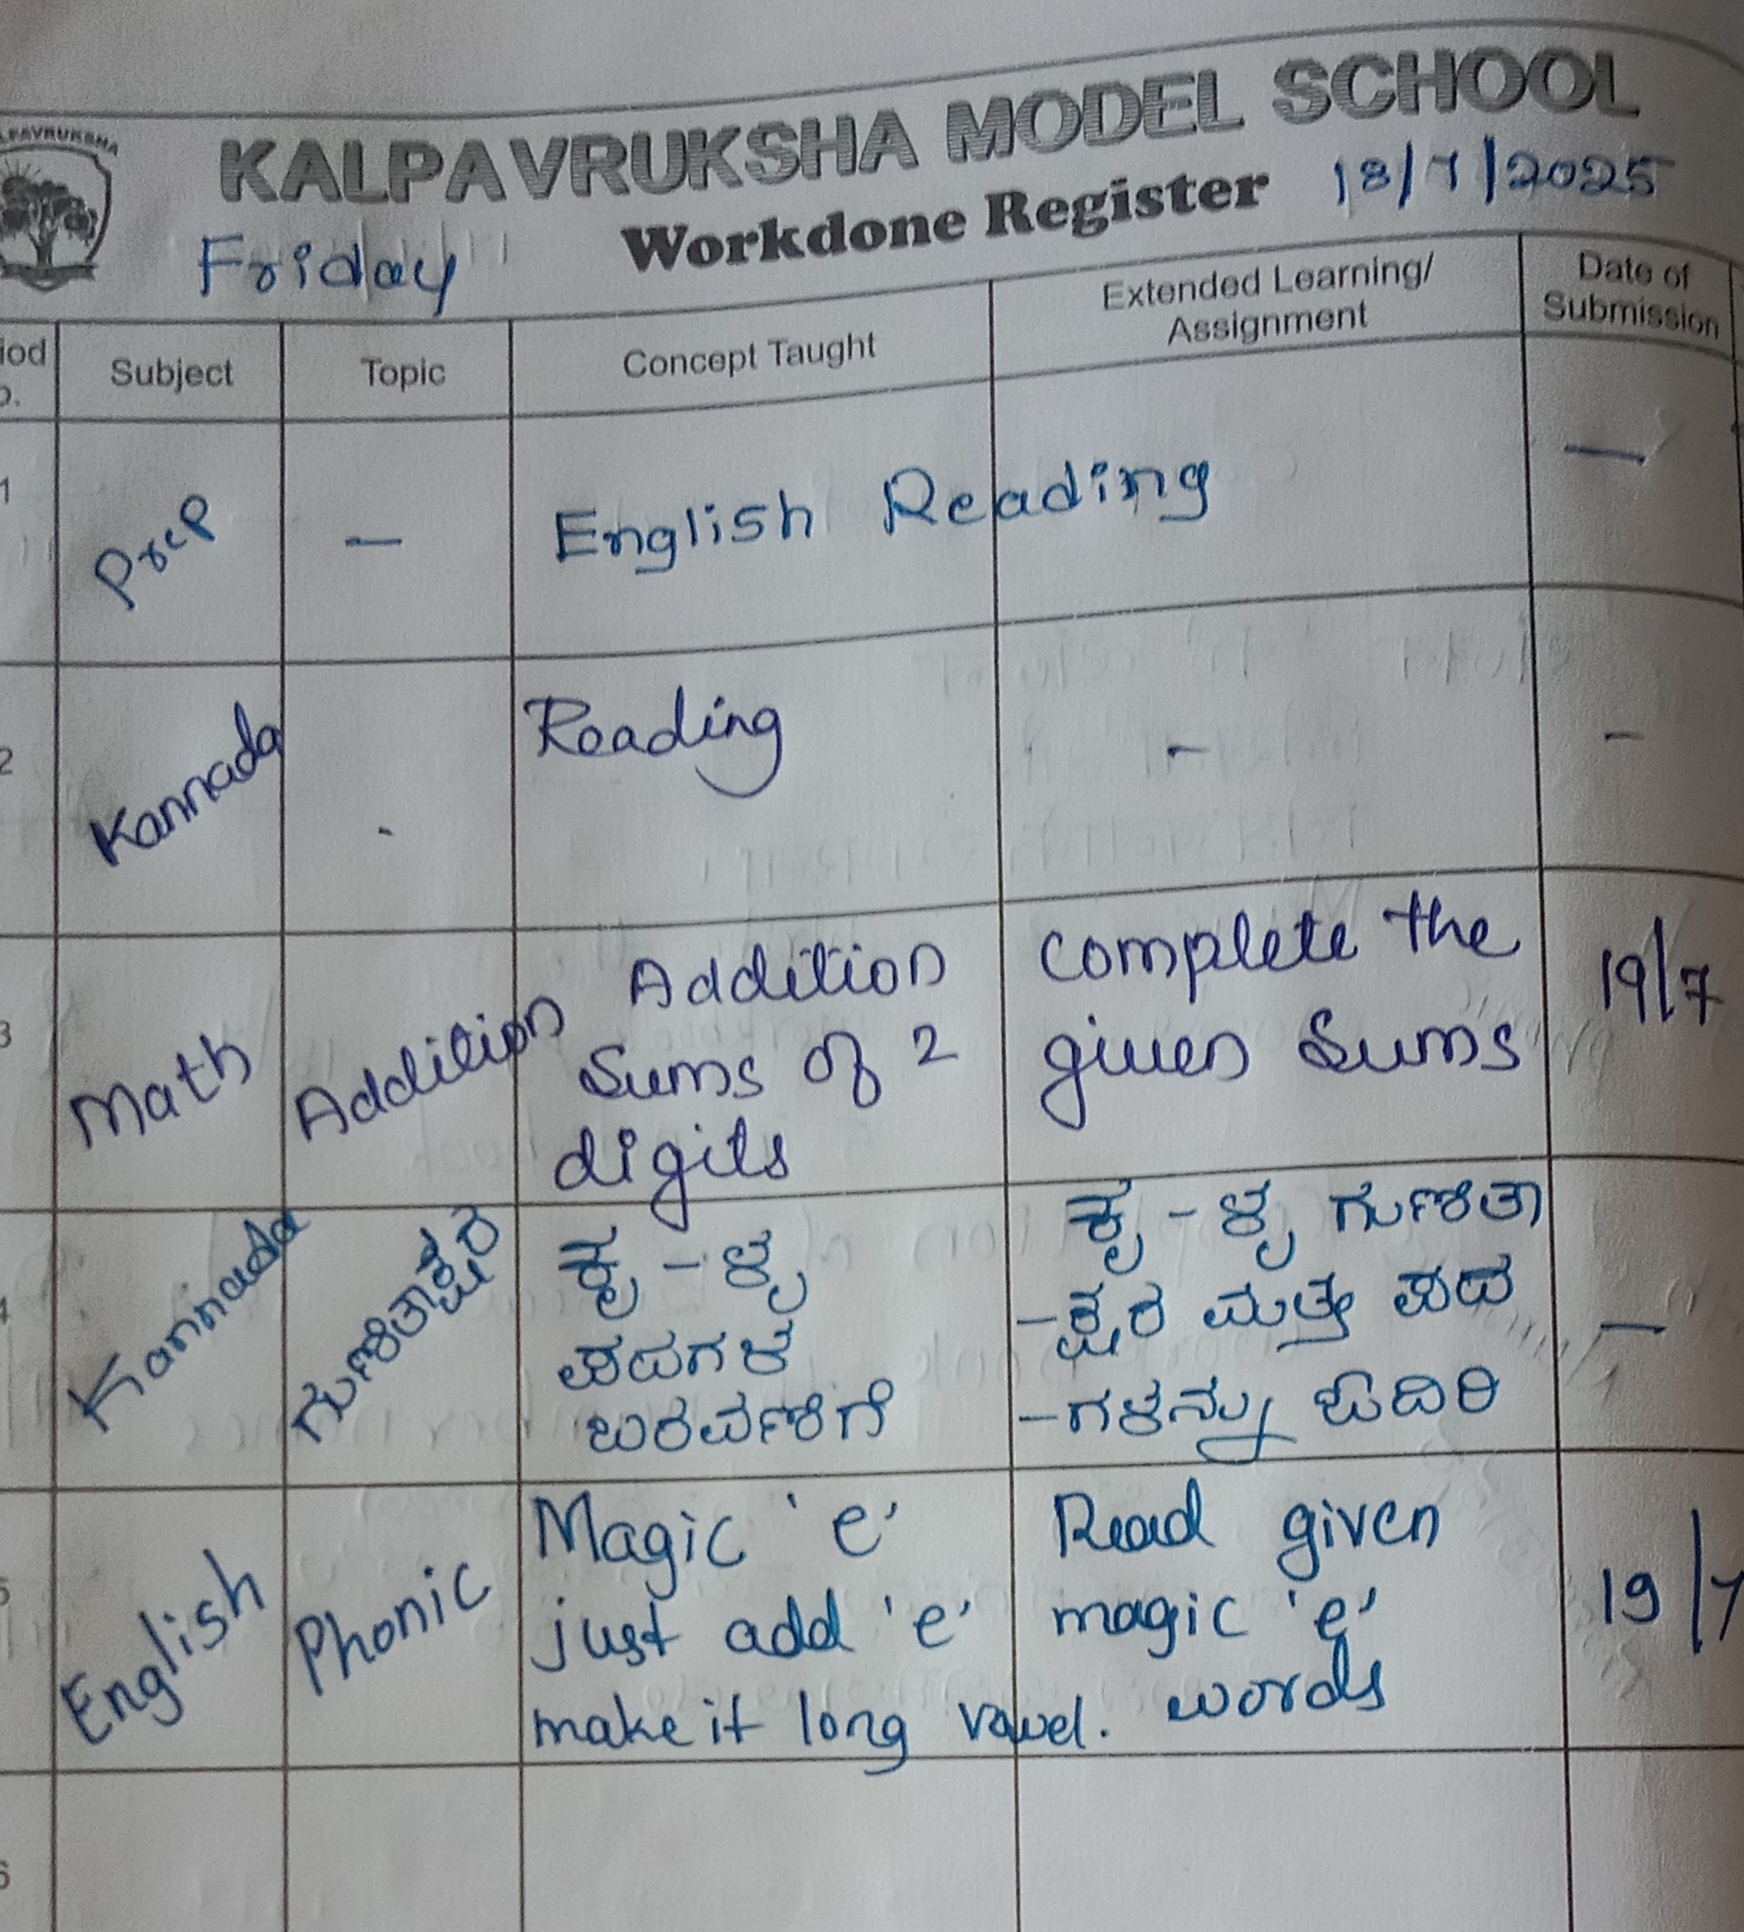 KALPAVRUKSHA
KALPAVRUKSHA MODEL SCHOOL
Friday Workdone Register 18/7/2025
Subject Topic Concept Taught Extended Learning/ Assignment Date of Submission
1 Prep - English Reading -
2 Kannada Reading - -
3 Math Addition Addition complete the 19/7
Sums of 2 given Sums
digits
4 Kannada ಗುಣಿತಾಕ್ಷರ ಕೃ - ಳೃ ಕೃ - ಳೃ ಗುಣಿತಾ -
ಪದಗಳ -ಕ್ಷರ ಮತ್ತು ಪದ
ಬರವಣಿಗೆ -ಗಳನ್ನು ಓದಿರಿ
5 English Phonic Magic 'e' Read given 19/7
just add 'e' magic 'e'
make it long vowel. words
6